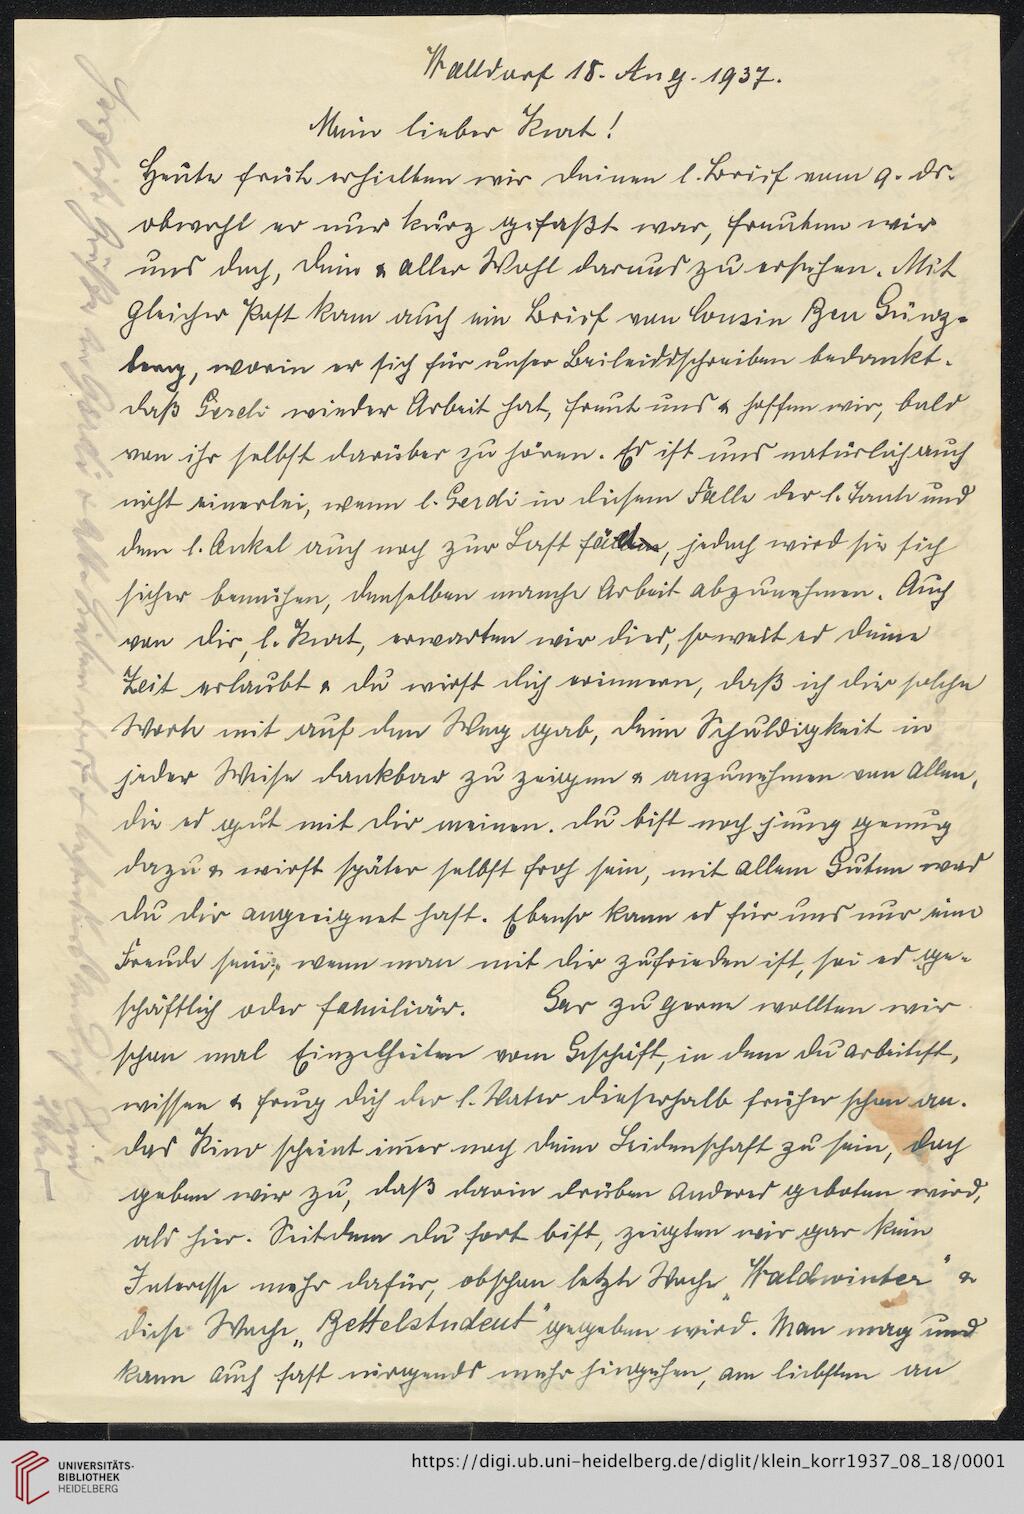 Walldorf 18. Aug. 1937.
Mein lieber Kurt!
Heute früh erhielten wir Deinen l. Brief vom 9. ds.
obwohl er nur kurz gefaßt war, freuten wir
uns doch, Dein & aller Wohl daraus zu ersehen. Mit
gleicher Post kam auch ein Brief von Cousin Ben Günz-
berg, worin er sich für unser Beileidsschreiben bedankt.
daß Gerdi wieder Arbeit hat, freut uns & hoffen wir, bald
von ihr selbst darüber zu hören. Es ist uns natürlich auch
nicht einerlei, wenn l. Gerdi in diesem Falle der l. Tante und
dem l. Onkel auch noch zur Last fällt, jedoch wird sie sich
sicher bemühen, denselben manche Arbeit abzunehmen. Auch
von dir, l. Kurt, erwarten wir dies, soweit es deine
Zeit erlaubt & du wirst dich erinnern, daß ich dir solche
Worte mit auf den Weg gab, deine Schuldigkeit in
jeder Weise dankbar zu zeigen & anzunehmen von Allen,
die es gut mit dir meinen. du bist noch jung genug
dazu & wirst später selbst froh sein, mit allem Guten was
du dir angeeignet hast. Ebenso kann es für uns nur eine
Freude sein, wenn man mit dir zufrieden ist, sei es ge-
schäftlich oder familiär. Gar zu gerne wollten wir
schon mal Einzelheiten vom Geschäft, in dem du arbeitest,
wissen & frug dich der l. Vater dieserhalb früher schon an.
das Kino scheint immer noch deine Leidenschaft zu sein, doch
geben wir zu, daß darin drüben anderes geboten wird,
als hier. Seitdem du fort bist, zeigten wir gar kein
Interesse mehr dafür, obschon letzte Woche „Waldwinter" &
diese Woche „Bettelstudent" gegeben wird. Man mag und
kann auch fast nirgends mehr hingehen, am liebsten an
UNIVERSITÄTS-
BIBLIOTHEK
HEIDELBERG
https://digi.ub.uni-heidelberg.de/diglit/klein_korr1937_08_18/0001